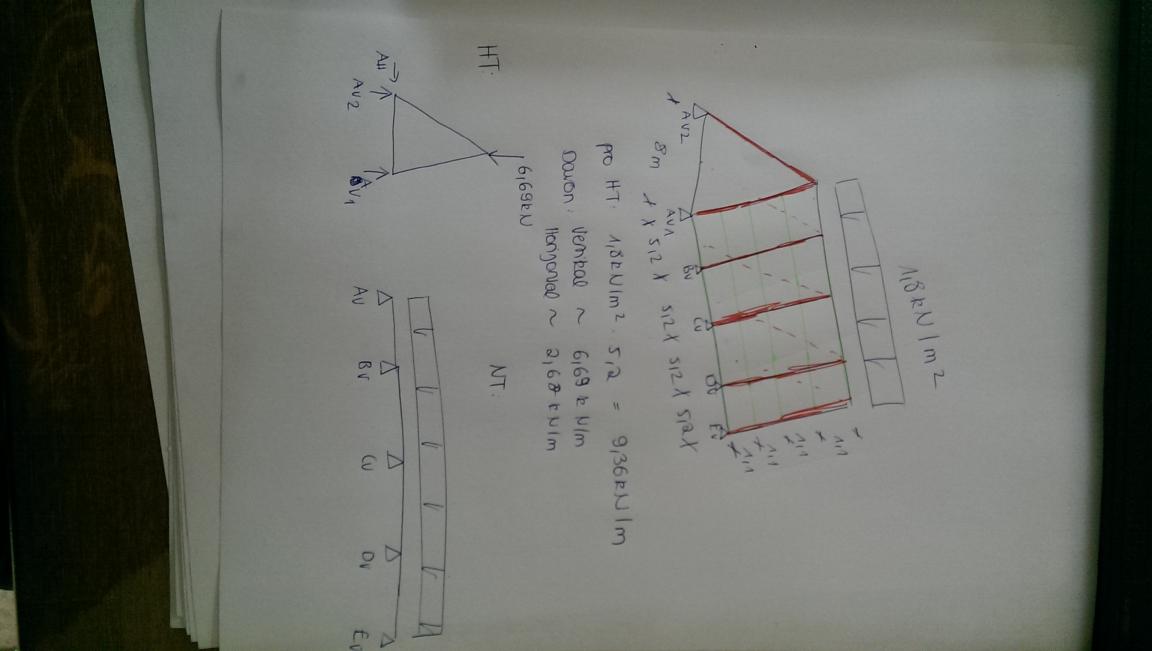 1,8kN/m2
AV2
AV1
BV
CV
DV
EV
1,1
1,1
1,1
1,1
8m
5,2 x 5,2 x 5,2 x 5,2 x
pro HT: 1,8kN/m2 · 5,2 = 9,36kN/m
Davon: Vertikal ~ 6,69kN/m
Horizontal ~ 2,68kN/m
HT:
6,69kN
AH
AV2
NT:
AV
BV
CV
DV
EV